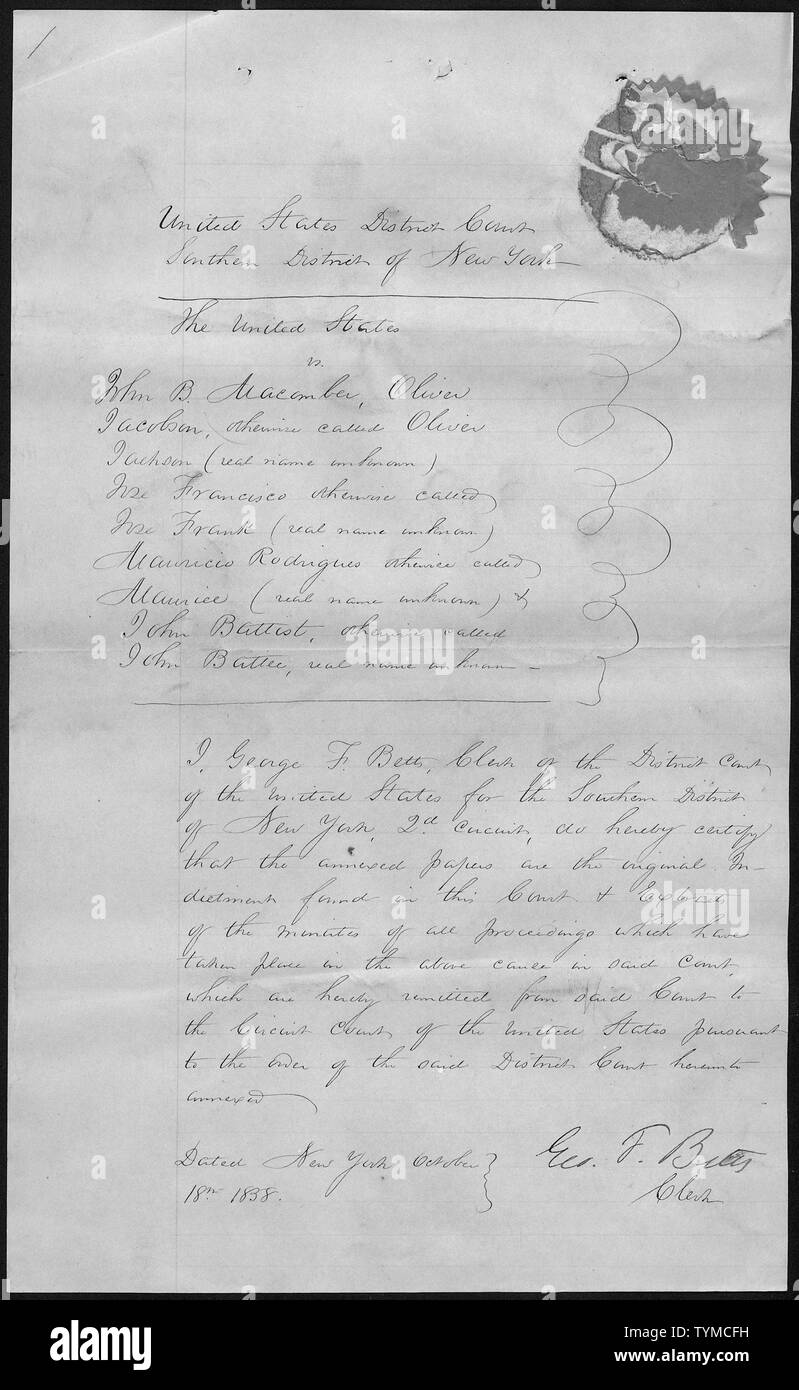 1
United States District Court
Southern District of New York
The United States
vs.
John B. Macomber, Oliver
Jacobson, otherwise called Oliver
Jackson (real name unknown)
Jose Francisco otherwise called
Jose Frank (real name unknown)
Mauricio Rodrigues otherwise called
Maurice (real name unknown) &
John Battist, otherwise called
John Battee, real name unknown –
I, George F. Betts, Clerk of the District Court
of the United States for the Southern District
of New York, 2d. Circuit, do hereby certify
that the annexed papers are the original In-
dictment found in this Court & Extracts
of the minutes of all proceedings which have
taken place in the above cause in said Court,
which are hereby remitted from said Court to
the Circuit Court of the United States pursuant
to the order of the said District Court hereunto
annexed
Dated New York October
18th 1838.
Geo. F. Betts
Clerk
alamy
alamy
Image ID: TYMCFH
www.alamy.com